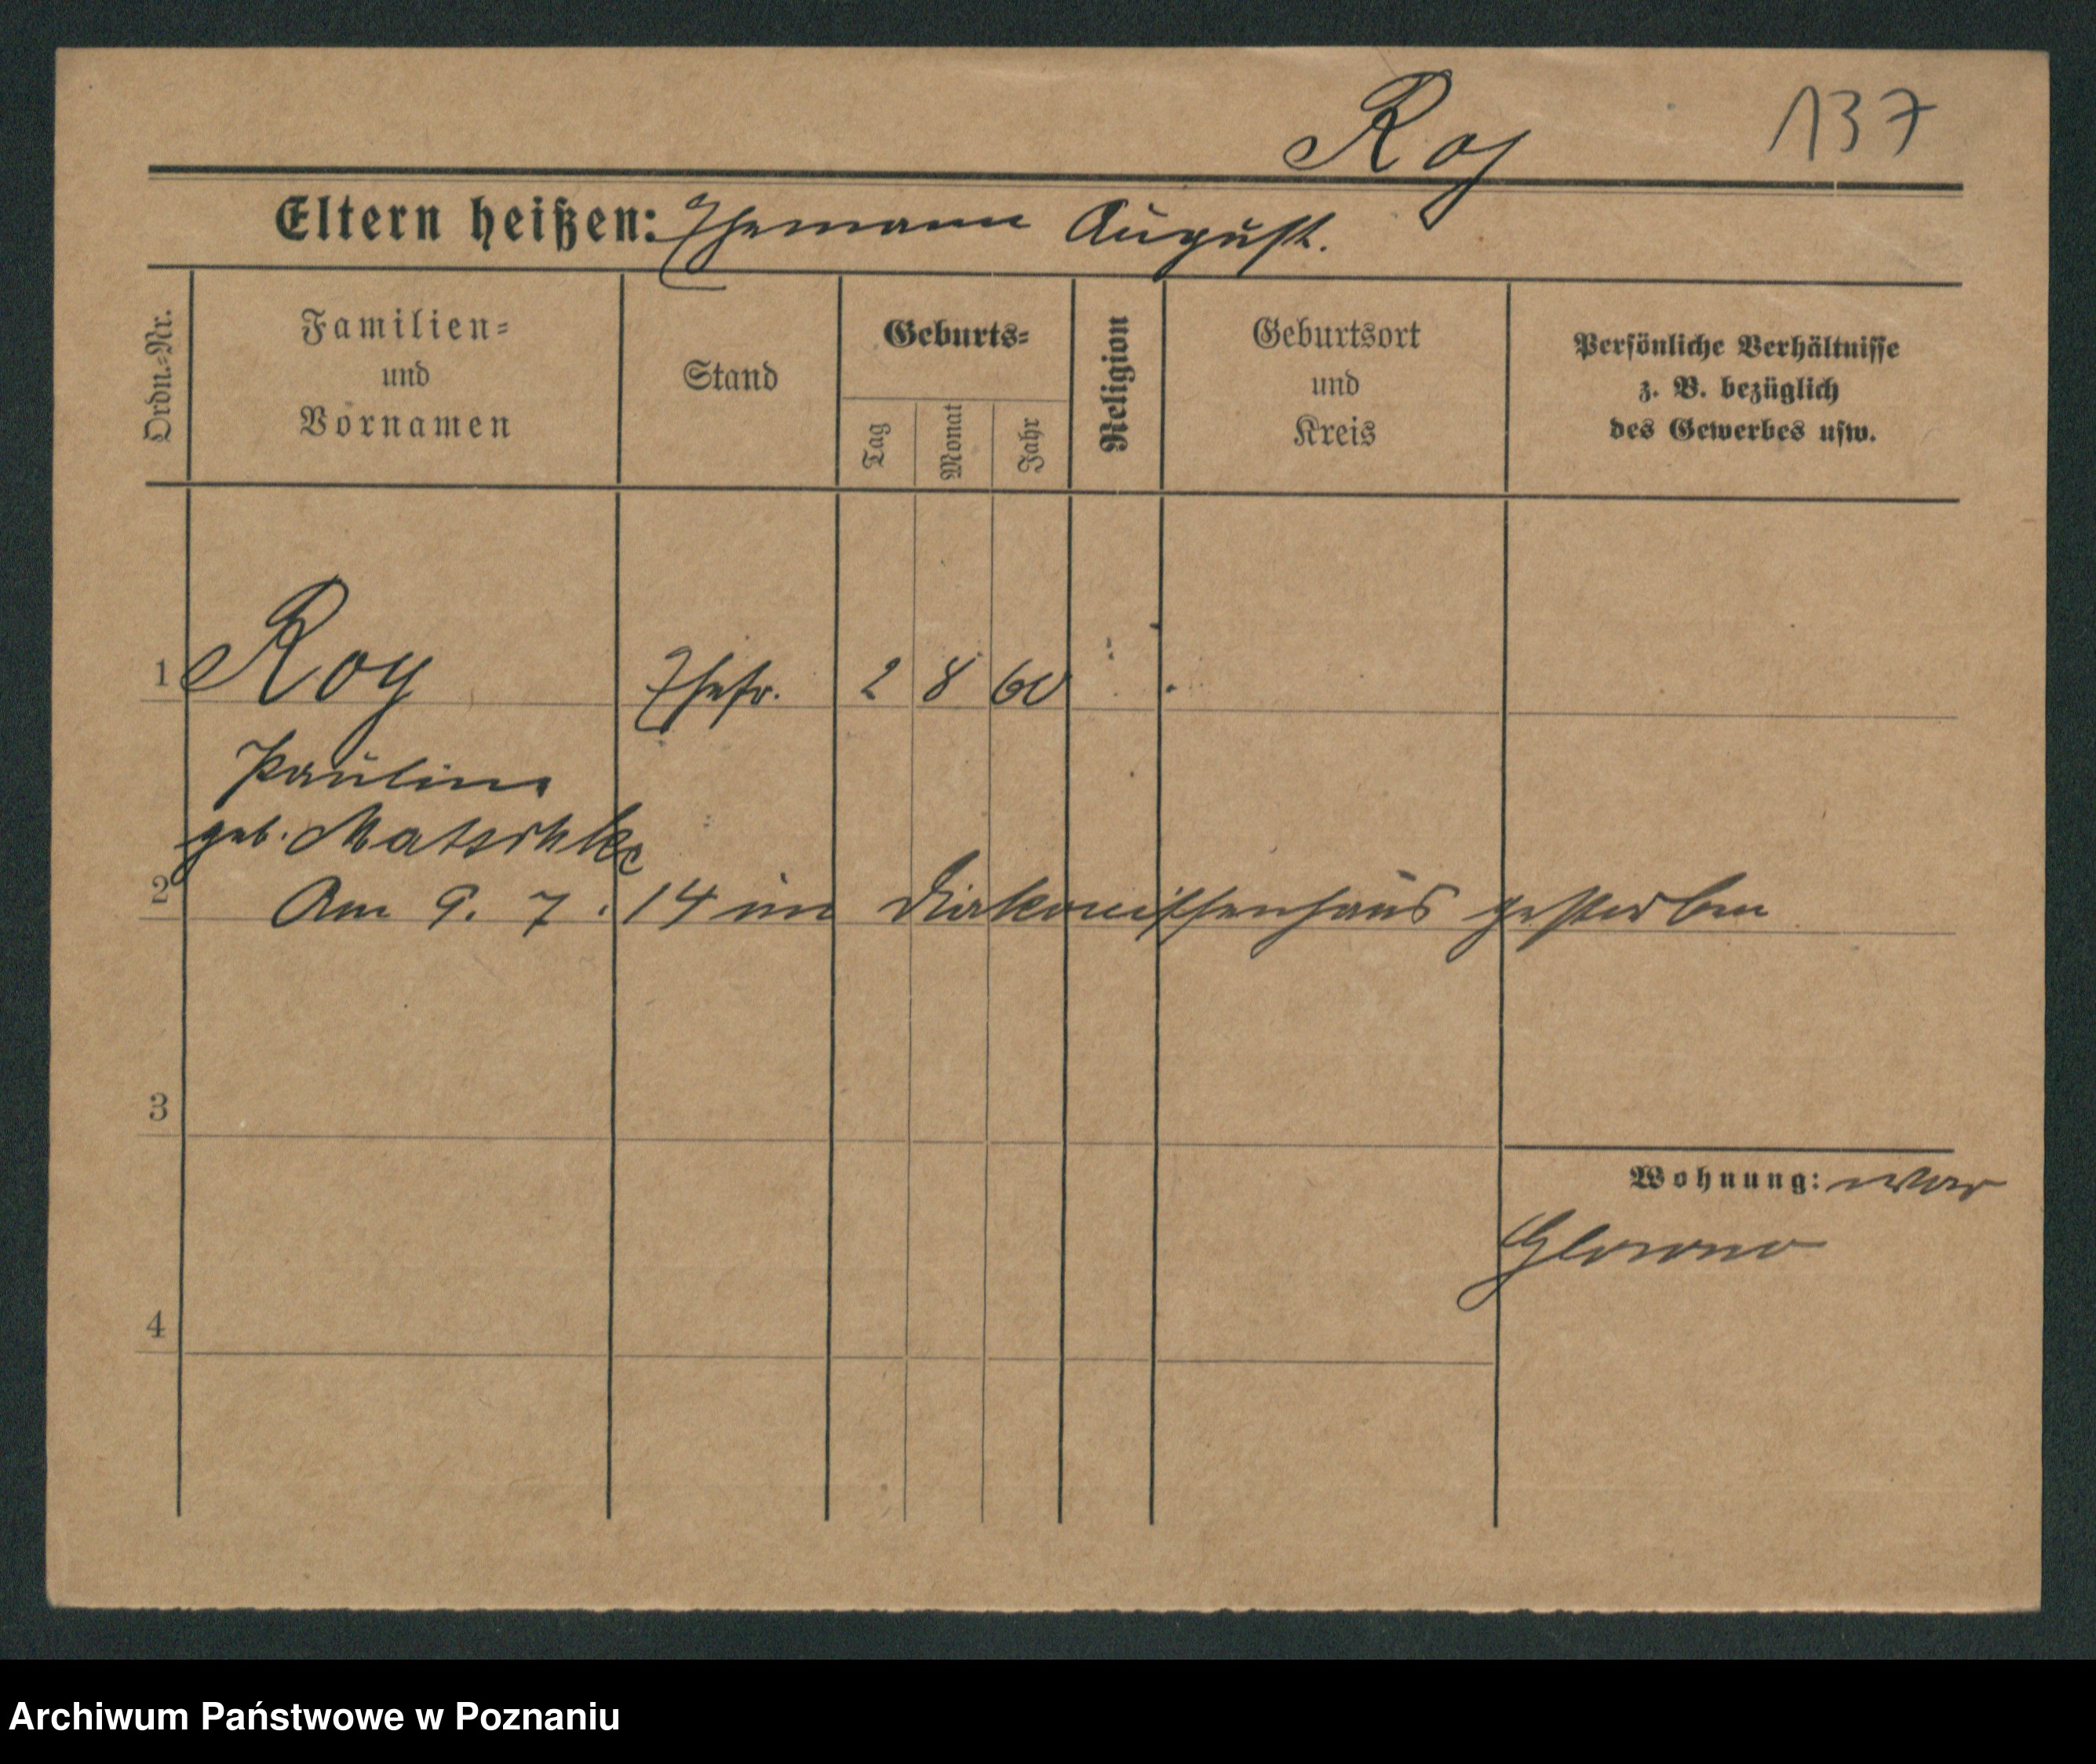 Roy 137
Eltern heißen: Ehemann August.
Ordn.-Nr.
Familien-
und
Vornamen
Stand
Geburts-
Tag
Monat
Jahr
Religion
Geburtsort
und
Kreis
Persönliche Verhältnisse
z. B. bezüglich
des Gewerbes usw.
1 Roy Ehefr. 2 8 60
Pauline
geb. Matschke
2
Am 9. 7. 14 im Diakonissenhaus gestorben
3
Wohnung: war
Glowno
4
Archiwum Państwowe w Poznaniu